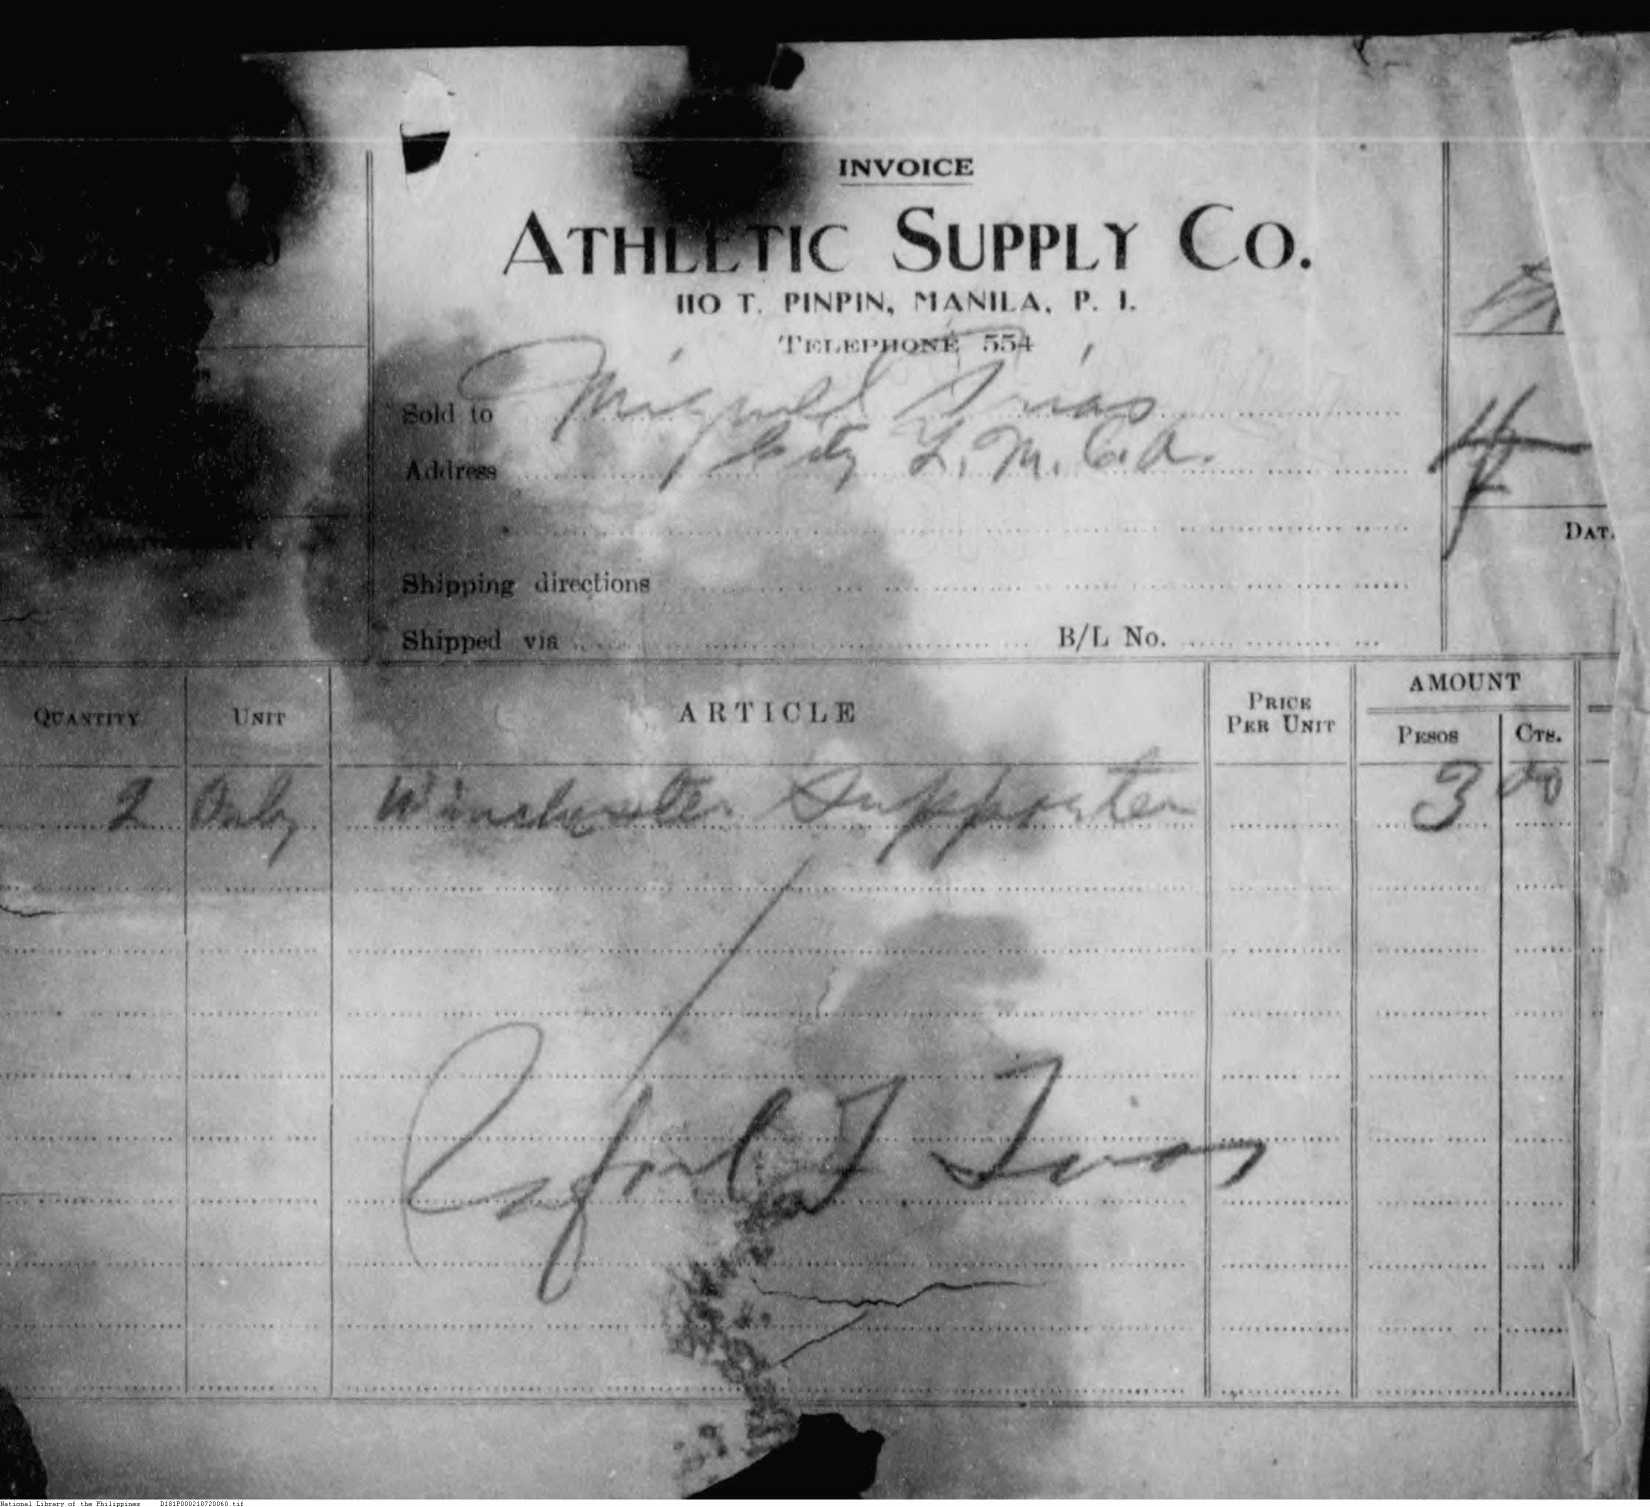 INVOICE
ATHLETIC SUPPLY CO.
110 T. PINPIN, MANILA, P. I.
TELEPHONE 554
Sold to Miguel Trias
Address City Y. M. C. A.
DAT
Shipping directions
Shipped via B/L No.
QUANTITY UNIT ARTICLE PRICE PER UNIT AMOUNT PESOS CTS.
2 Only Winchester Supporter 3 00
Rafael T Trias
National Library of the Philippines D181P000210720060.tif